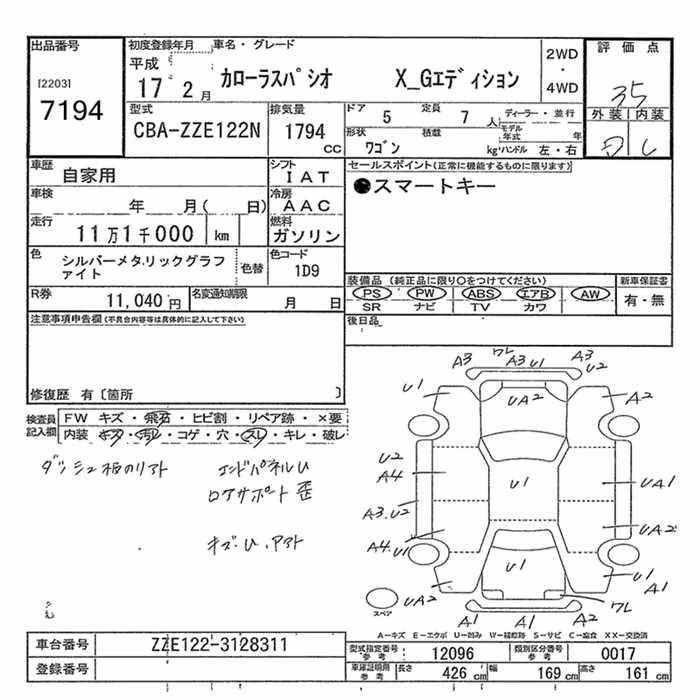 出品番号
[2203]
7194
初度登録年月
平成
17 2 月
車名・グレード
カローラスパシオ X_Gエディション
2WD
・
4WD
評価点
35
外装 内装
D C
型式
CBA-ZZE122N
排気量
1794
cc
ドア 5 定員 7 人
ディーラー・並行
モデル年式 年
形状 ワゴン 積載 kg
ハンドル 左・右
車歴 自家用
シフト IAT
車検 年 月( 日)
冷房 AAC
走行 11万1千000 km
燃料 ガソリン
色 シルバーメタリックグラファイト
色替
色コード 1D9
R券 11,040円
名変通知期限 月 日
セールスポイント(正常に機能するものに限ります)
●スマートキー
装備品 (純正品に限り○をつけてください)
PS PW ABS エアB AW
SR ナビ TV カワ
新車保証書
有・無
後日品
注意事項申告欄(不具合内容等は具体的に記入して下さい)
修復歴 有〔箇所 〕
検査員記入欄
FW キズ・飛石・ヒビ割・リペア跡・×要
内装 キズ・汚レ・コゲ・穴・スレ・キレ・破レ
ダッシュ板のリアト
エンドパネルU
ロアサポート 歪
キズ・U、アト
A3 ワレ A3 U1 A3 U2
U1 UA2 A2
U2
A4 U1 UA1
A3.U2
A4.U1 UA2
U1 U1
A1
UA2 ワレ
A1 A1 A2
スペア
A―キズ E―エクボ U―凹み W―補修跡 S―サビ C―腐食 XX―交換済
車台番号 ZZE122-3128311
登録番号
型式指定番号 参考 12096
類別区分番号 参考 0017
車庫証明用 参考 長さ 426 cm 幅 169 cm 高さ 161 cm